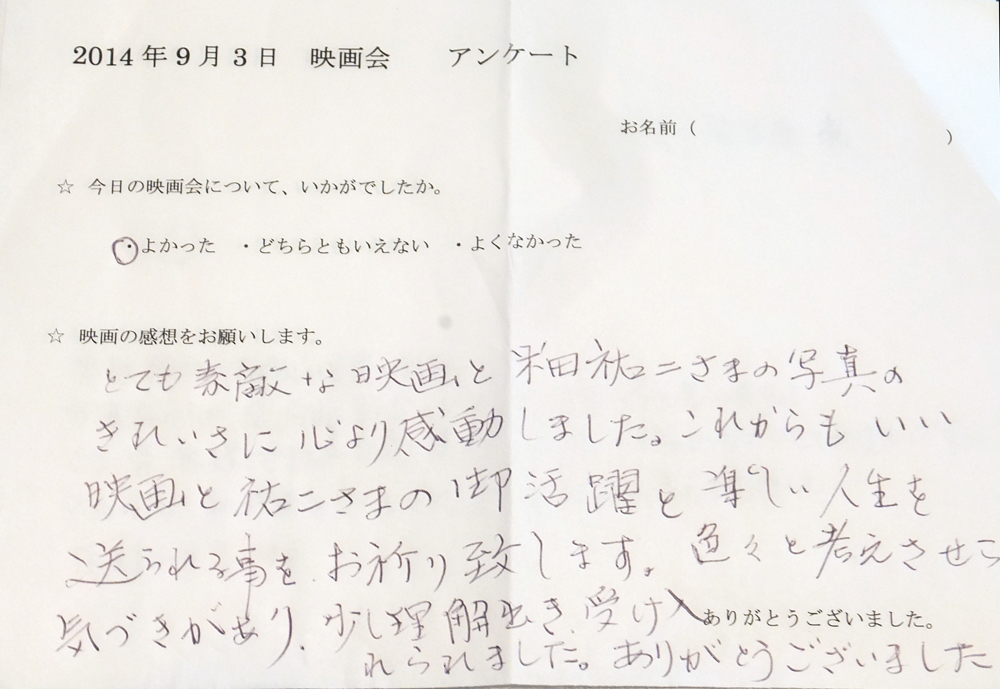 2014年9月3日 映画会 アンケート
お名前( )
☆ 今日の映画会について、いかがでしたか。
・よかった ・どちらともいえない ・よくなかった
☆ 映画の感想をお願いします。
とても素敵な映画と米田祐二さまの写真の
きれいさに心より感動しました。これからもいい
映画と祐二さまの御活躍と楽しい人生を
送られる事を、お祈り致します。色々と考えさせら
気づきがあり、少し理解出き、受け入
ありがとうございました。
れられました。ありがとうございました